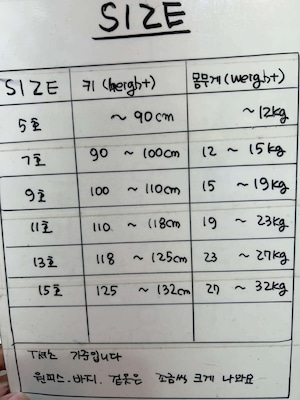 SIZE
SIZE 키 (height) 몸무게 (weight)
5호 ~ 90cm ~12kg
7호 90 ~ 100cm 12 ~ 15kg
9호 100 ~ 110cm 15 ~ 19kg
11호 110 ~ 118cm 19 ~ 23kg
13호 118 ~ 125cm 23 ~ 27kg
15호 125 ~ 132cm 27 ~ 32kg
기준입니다
원피스. 바지. 겉옷은 조금씩 크게 나와요